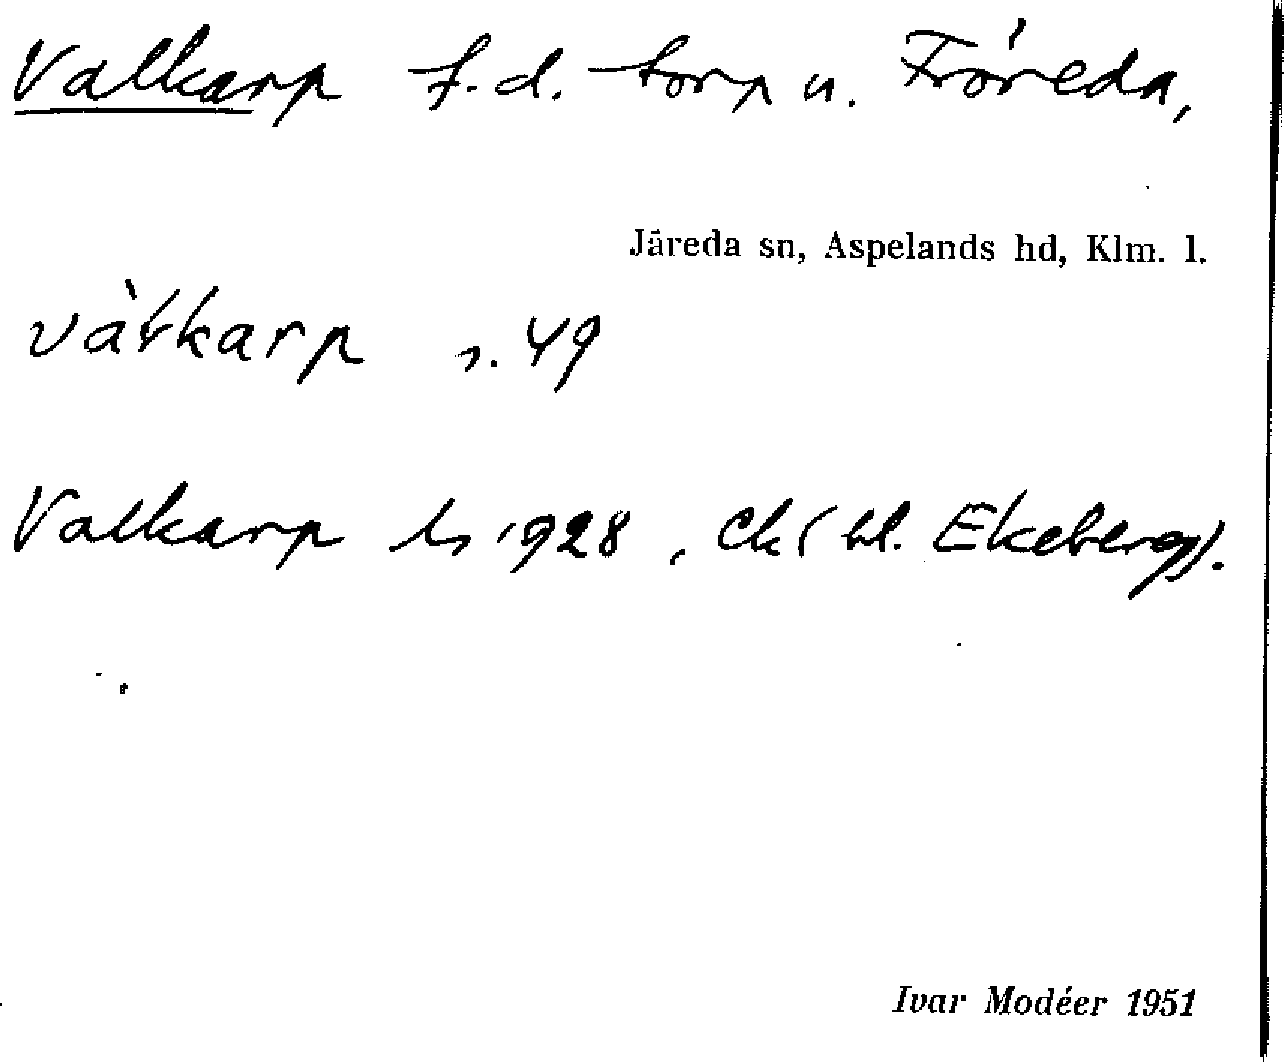 Valkarp f.d. torp u. Fröreda,
Järeda sn, Aspelands hd, Klm. l.
vàłkarp s. 49
Valkarp Js 1928, Ek (bl. Ekeberg).
Ivar Modéer 1951